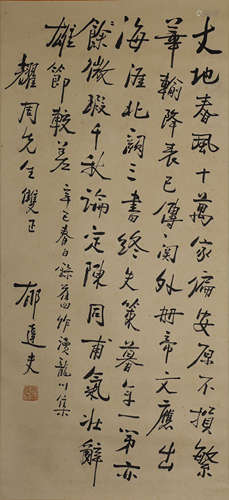 大地春風十萬家偏安原不損繁
華輸降表已傳關外冊帝文應出
海淮北詞三書終失策暮年一第亦
餘微瑕千秋論定陳同甫氣壯辭
雄節較差
辛巳春日錄舊作讀龍川集
耀周先生雙正
郁達夫